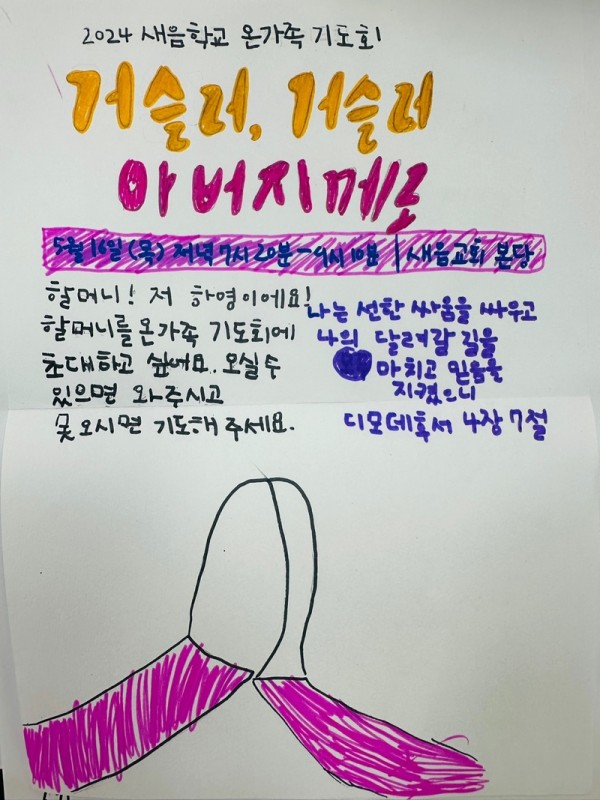 2024 새음학교 온가족 기도회
거슬러, 거슬러
아버지께로
5월 16일 (목) 저녁 7시 20분 - 9시 10분 | 새음교회 본당
할머니! 저 하영이에요!
할머니를 온가족 기도회에
초대하고 싶어요. 오실 수
있으면 와주시고
못 오시면 기도해 주세요.
나는 선한 싸움을 싸우고
나의 달려갈 길을
마치고 믿음을
지켰으니
디모데후서 4장 7절